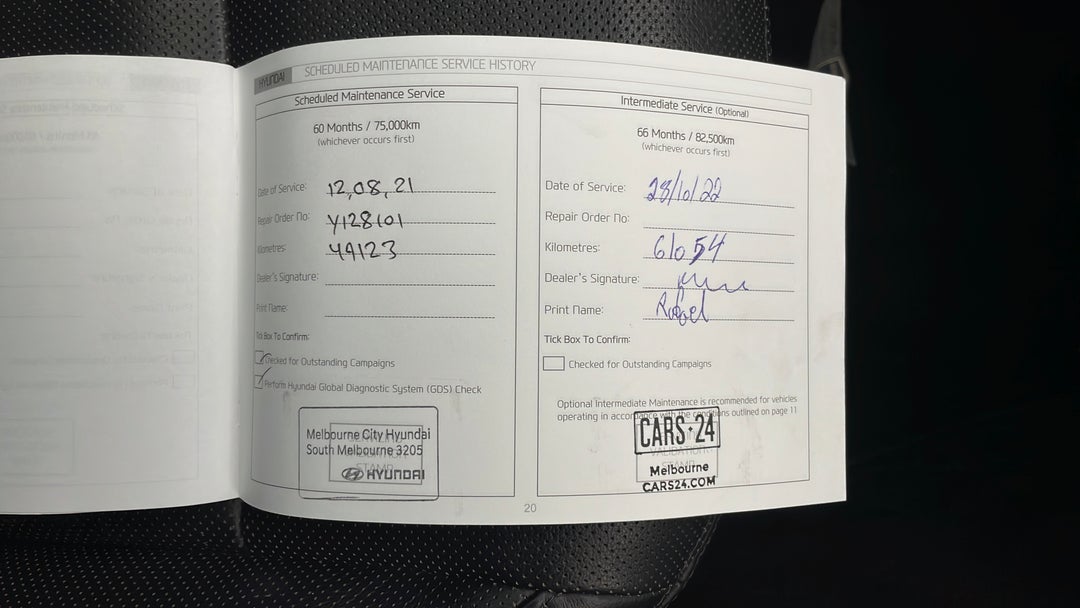 HYUNDAI SCHEDULED MAINTENANCE SERVICE HISTORY
Scheduled Maintenance Service
60 Months / 75,000km
(whichever occurs first)
Date of Service: 12,08,21
Repair Order No: Y128101
Kilometres: 49123
Dealer's Signature:
Print Name:
Tick Box To Confirm:
Checked for Outstanding Campaigns
Perform Hyundai Global Diagnostic System (GDS) Check
Melbourne City Hyundai
South Melbourne 3205
STAMP
HYUNDAI
Intermediate Service (Optional)
66 Months / 82,500km
(whichever occurs first)
Date of Service: 28/10/22
Repair Order No:
Kilometres: 61054
Dealer's Signature:
Print Name: Rafael
Tick Box To Confirm:
Checked for Outstanding Campaigns
Optional Intermediate Maintenance is recommended for vehicles
operating in accordance with the conditions outlined on page 11
CARS·24
VALIDATION
STAMP
Melbourne
CARS24.COM
20